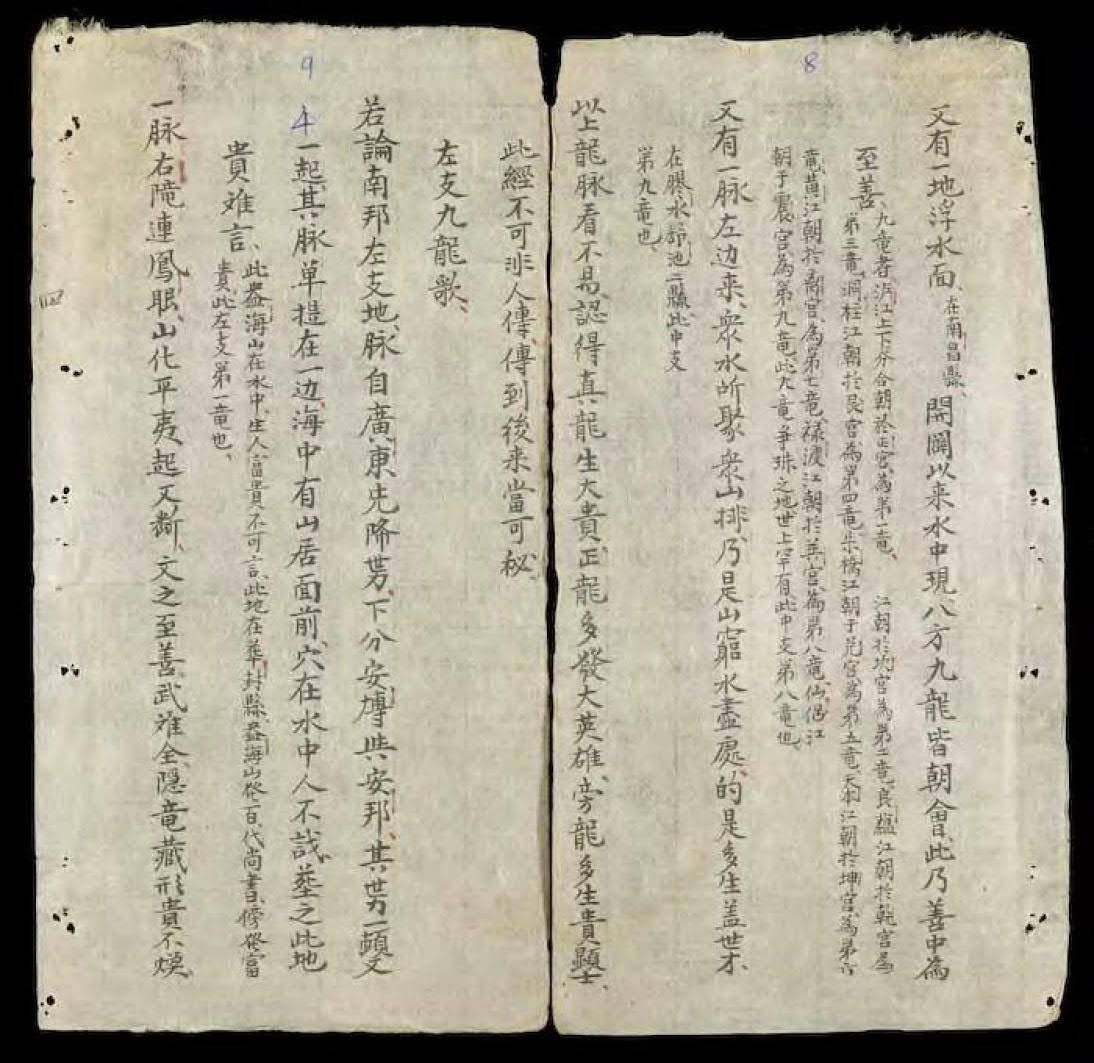 8
又有一地浮水面、在南昌縣、開闢以来水中現、八方九龍皆朝會、此乃善中為
至善、九竜者、泻江上下分合朝於离宮、為第一竜、江朝於坎宮為第二竜、良蘊江朝於乾宮為
第三竜、洞柱江朝於艮宮為第四竜、朱橋江朝于兑宮為第五竜、天本江朝於坤宮、為第六
竜、黄江朝於宮、為第七竜、禄渡江朝於巽宮、為第八竜、仙侣江
朝于震宮、為第九竜、此九竜争珠之地世上罕有、此中支第八竜也、
又有一脉左边来、衆水所聚衆山排、乃是山窮水盡處、的是多生盖世才、
在膠水舒池二縣、此中支
第九竜也、
以上龍脉看不易、認得真龍生大貴、正龍多發大英雄、旁龍多生貴顯士、
此經不可非人傳、傳到後来當可秘、
9
左支九龍歌、
若論南邦左支地、脉自廣東先降势、下分安博与安邦、其势一頓又
4
一起、其脉单提在一边、海中有山居面前、穴在水中人不識、葬之此地
貴难言、此盎海山在水中、生人富貴不可言、此地在華封縣、盎海山發百代尚書、傍發富
貴、此左支第一竜也、
一脉右障連鳳眼、山化平夷起又斷、文之至善武难全、隐竜藏形貴不煥、